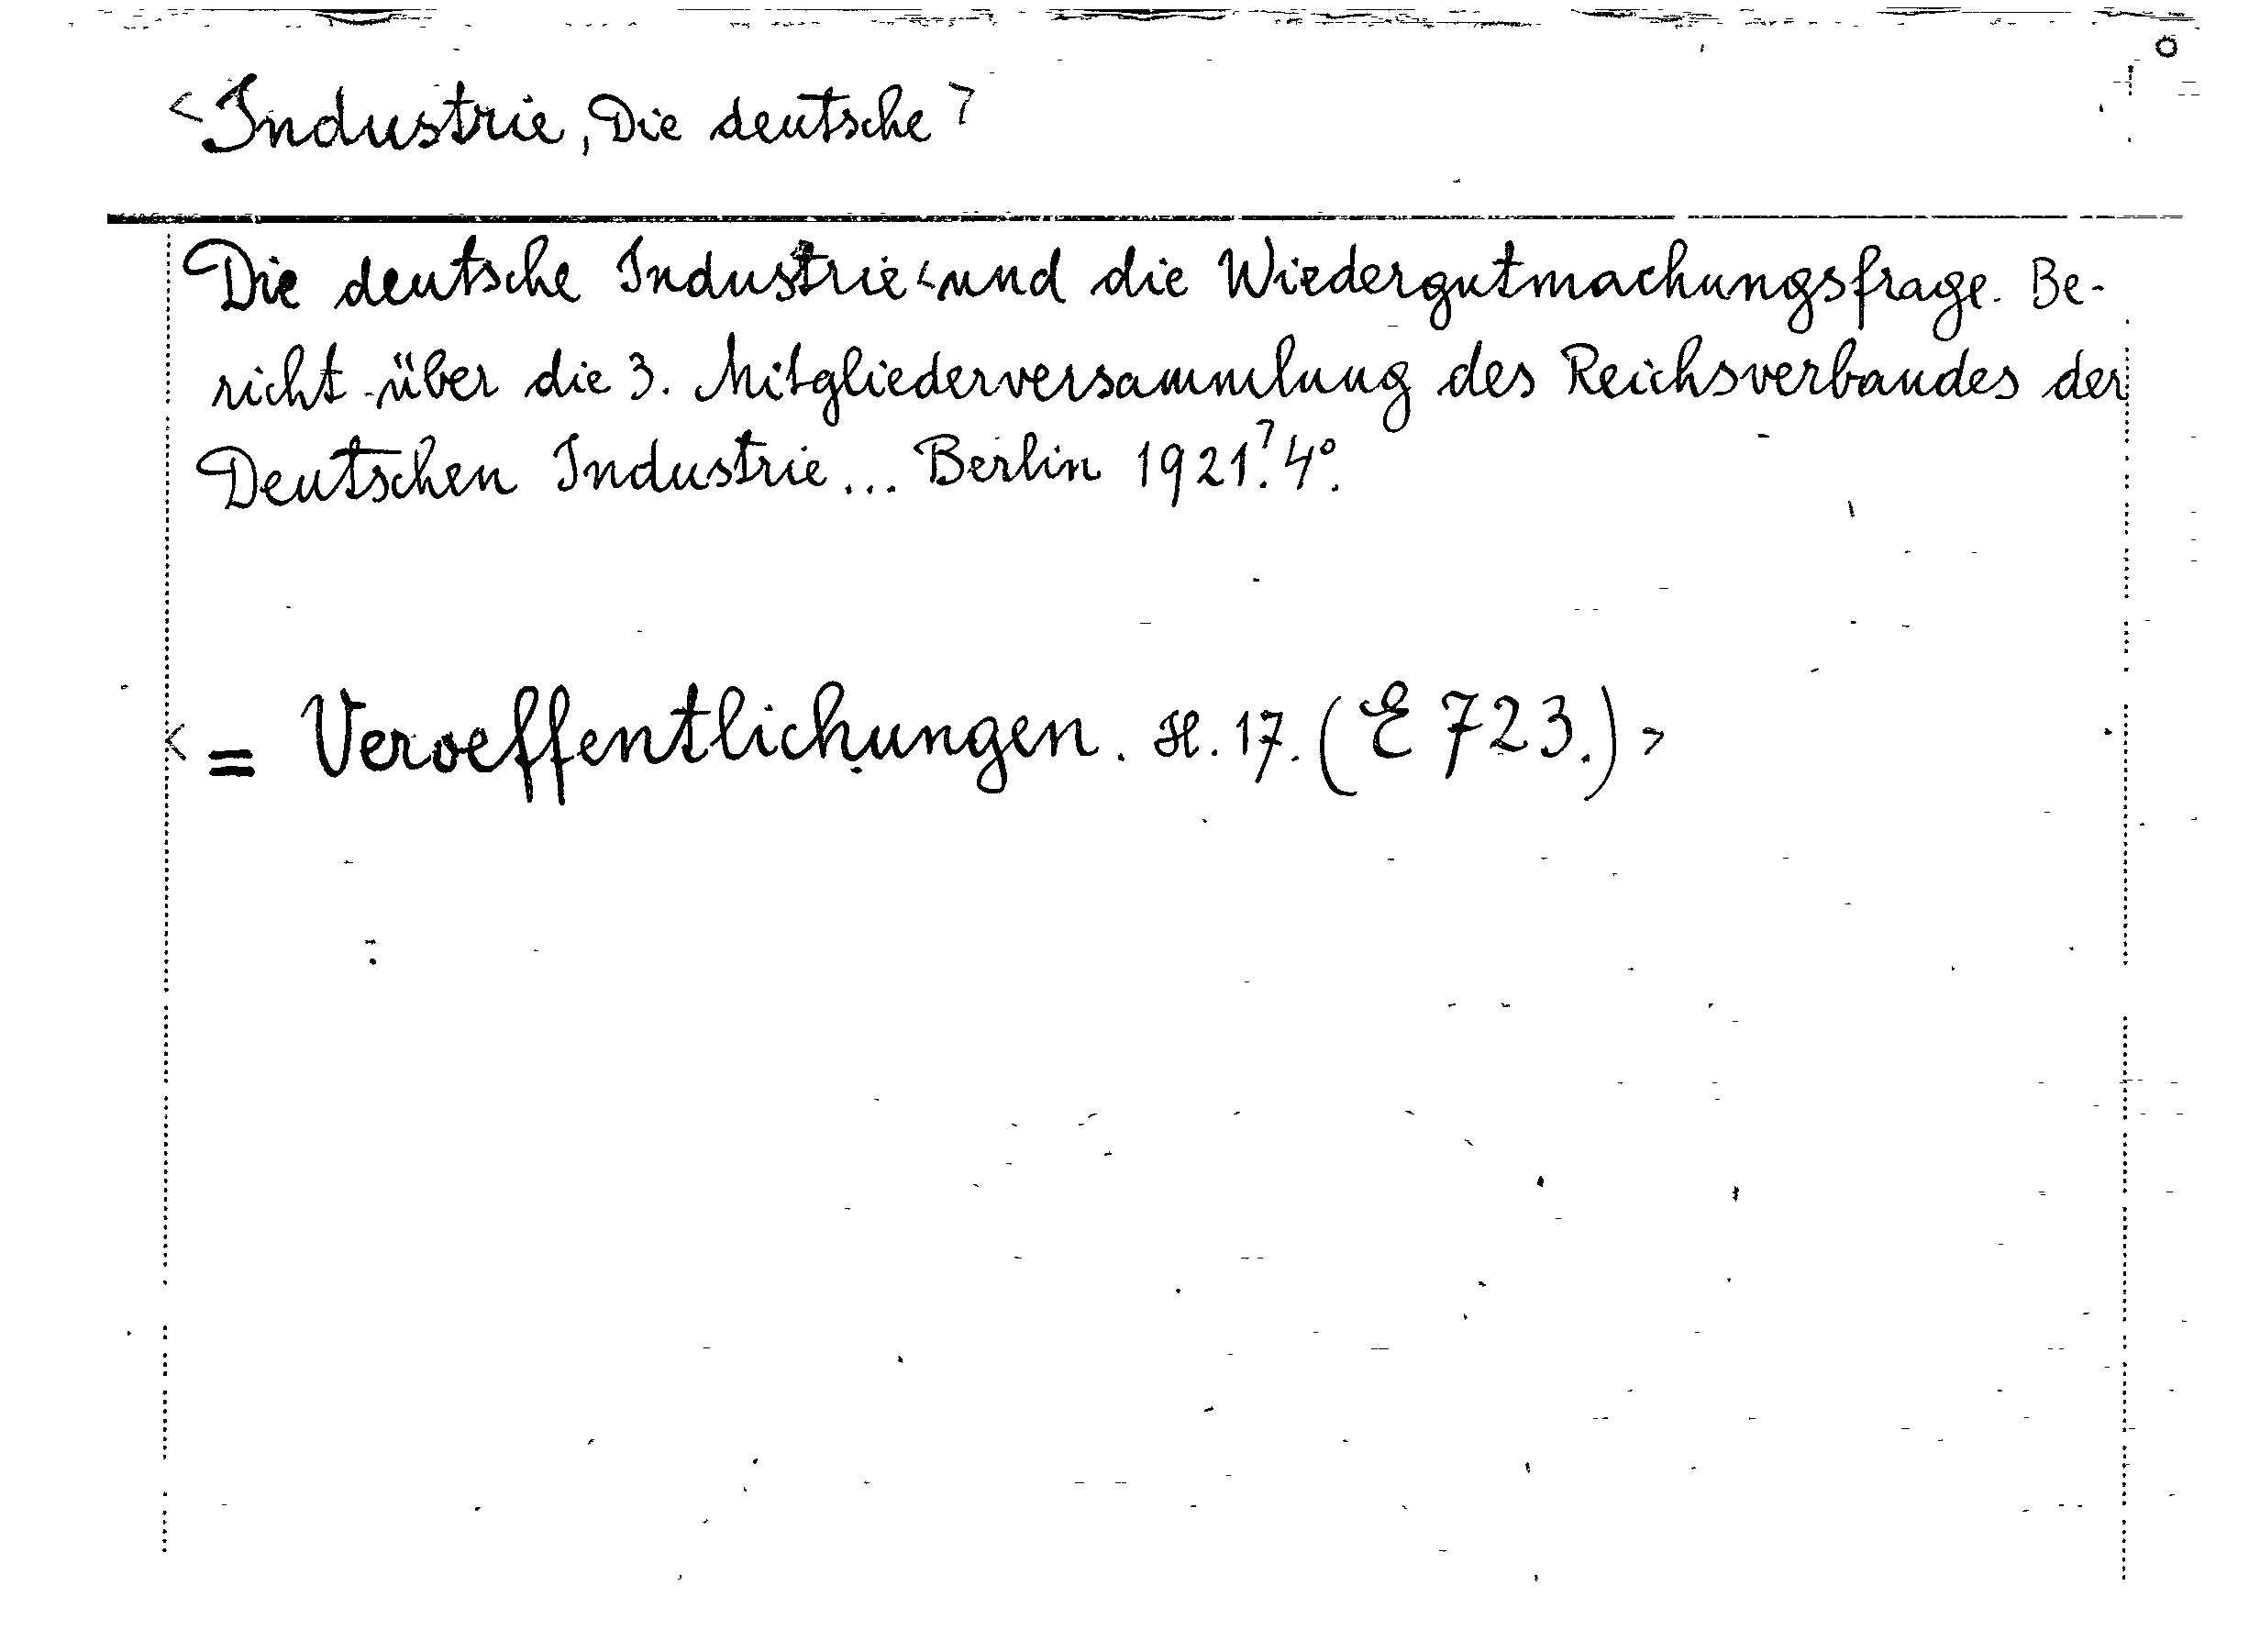 <Industrie, Die deutsche>
Die deutsche Industrie <und die Wiedergutmachungsfrage. Be-
richt über die 3. Mitgliederversammlung des Reichsverbandes der
Deutschen Industrie... Berlin 1921.> 4°.
<= Veroeffentlichungen. H. 17. (E 723.)>